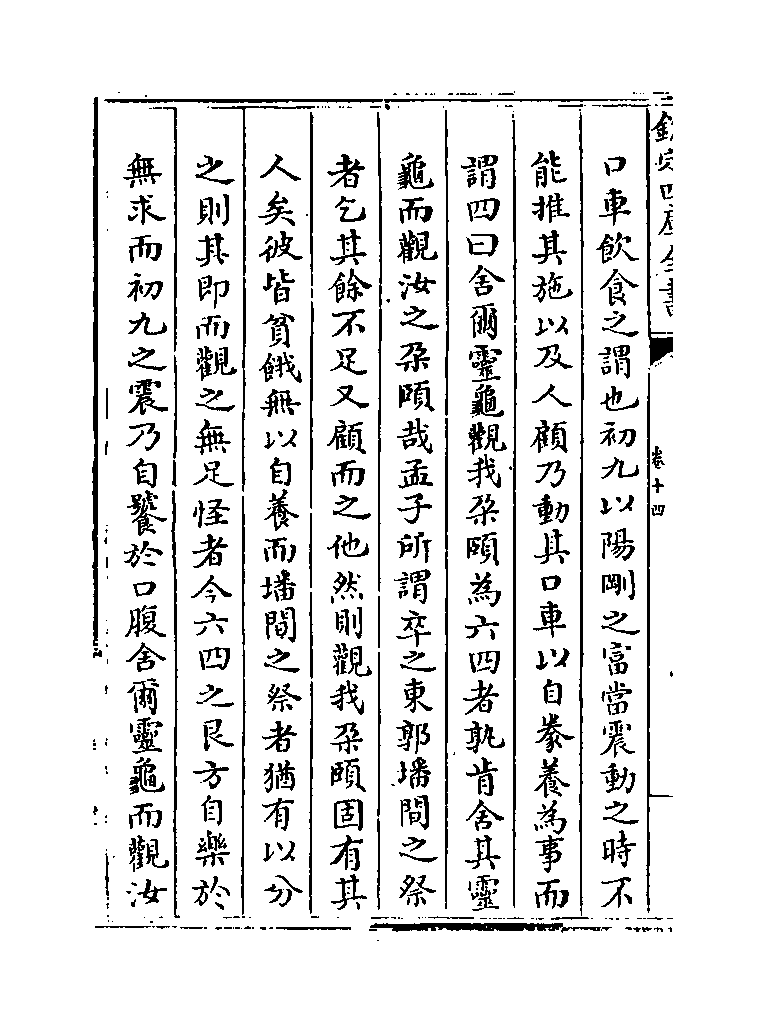 欽定四庫全書
卷十四
口車飲食之謂也初九以陽剛之富當震動之時不
能推其施以及人顧乃動其口車以自豢養為事而
謂四曰舍爾靈龜觀我朶頤為六四者孰肯舍其靈
龜而觀汝之朶頤哉孟子所謂卒之東郭墦間之祭
者乞其餘不足又顧而之他然則觀我朶頤固有其
人矣彼皆貧餓無以自養而墦間之祭者猶有以分
之則其即而觀之無足怪者今六四之艮方自樂於
無求而初九之震乃自饕於口腹舍爾靈龜而觀汝